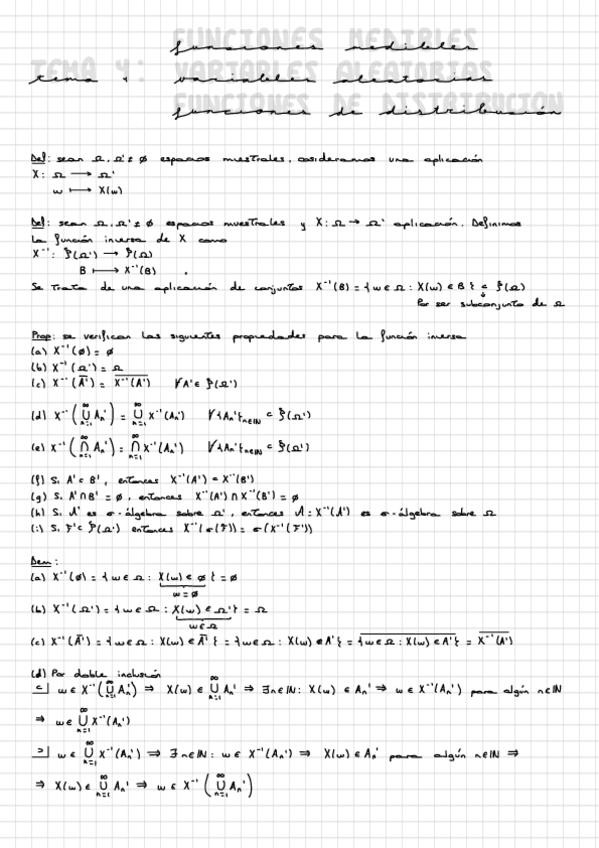 FUNCIONES MEDIBLES
funciones medibles
TEMA 4: VARIABLES ALEATORIAS
tema 4 variables aleatorias
FUNCIONES DE DISTRIBUCIÓN
funciones de distribución
Def: sean Ω, Ω' ≠ ∅ espacios muestrales, consideramos una aplicación
X: Ω ⟶ Ω'
ω ⟼ X(ω)
Def: sean Ω, Ω' ≠ ∅ espacios muestrales y X: Ω → Ω' aplicación. Definimos
la función inversa de X como
X⁻¹: P(Ω') ⟶ P(Ω)
B ⟼ X⁻¹(B)
Se trata de una aplicación de conjuntos X⁻¹(B) = {ω ∈ Ω : X(ω) ∈ B} ⊂ P(Ω)
Por ser subconjunto de Ω
Prop: se verifican las siguientes propiedades para la función inversa
(a) X⁻¹(∅) = ∅
(b) X⁻¹(Ω') = Ω
(c) X⁻¹(A̅') = \overline{X⁻¹(A')} ∀A' ∈ P(Ω')
(d) X⁻¹(⋃_{n=1}^∞ Aₙ') = ⋃_{n=1}^∞ X⁻¹(Aₙ') ∀{Aₙ'}_{n∈ℕ} ⊂ P(Ω')
(e) X⁻¹(⋂_{n=1}^∞ Aₙ') = ⋂_{n=1}^∞ X⁻¹(Aₙ') ∀{Aₙ'}_{n∈ℕ} ⊂ P(Ω')
(f) Si A' ⊂ B', entonces X⁻¹(A') ⊂ X⁻¹(B')
(g) Si A' ∩ B' = ∅, entonces X⁻¹(A') ∩ X⁻¹(B') = ∅
(h) Si A' es σ-álgebra sobre Ω', entonces A = X⁻¹(A') es σ-álgebra sobre Ω
(i) Si F' ⊂ P(Ω') entonces X⁻¹(σ(F')) = σ(X⁻¹(F'))
Dem:
(a) X⁻¹(∅) = {ω ∈ Ω : X(ω) ∈ ∅} = ∅
ω = ∅
(b) X⁻¹(Ω') = {ω ∈ Ω : X(ω) ∈ Ω'} = Ω
ω ∈ Ω
(c) X⁻¹(A̅') = {ω ∈ Ω : X(ω) ∈ A̅'} = {ω ∈ Ω : X(ω) ∉ A'} = \overline{{ω ∈ Ω : X(ω) ∈ A'}} = \overline{X⁻¹(A')}
(d) Por doble inclusión
⊂| ω ∈ X⁻¹(⋃_{n=1}^∞ Aₙ') ⇒ X(ω) ∈ ⋃_{n=1}^∞ Aₙ' ⇒ ∃n∈ℕ : X(ω) ∈ Aₙ' ⇒ ω ∈ X⁻¹(Aₙ') para algún n∈ℕ
⇒ ω ∈ ⋃_{n=1}^∞ X⁻¹(Aₙ')
⊃| ω ∈ ⋃_{n=1}^∞ X⁻¹(Aₙ') ⇒ ∃n∈ℕ : ω ∈ X⁻¹(Aₙ') ⇒ X(ω) ∈ Aₙ' para algún n∈ℕ ⇒
⇒ X(ω) ∈ ⋃_{n=1}^∞ Aₙ' ⇒ ω ∈ X⁻¹(⋃_{n=1}^∞ Aₙ')